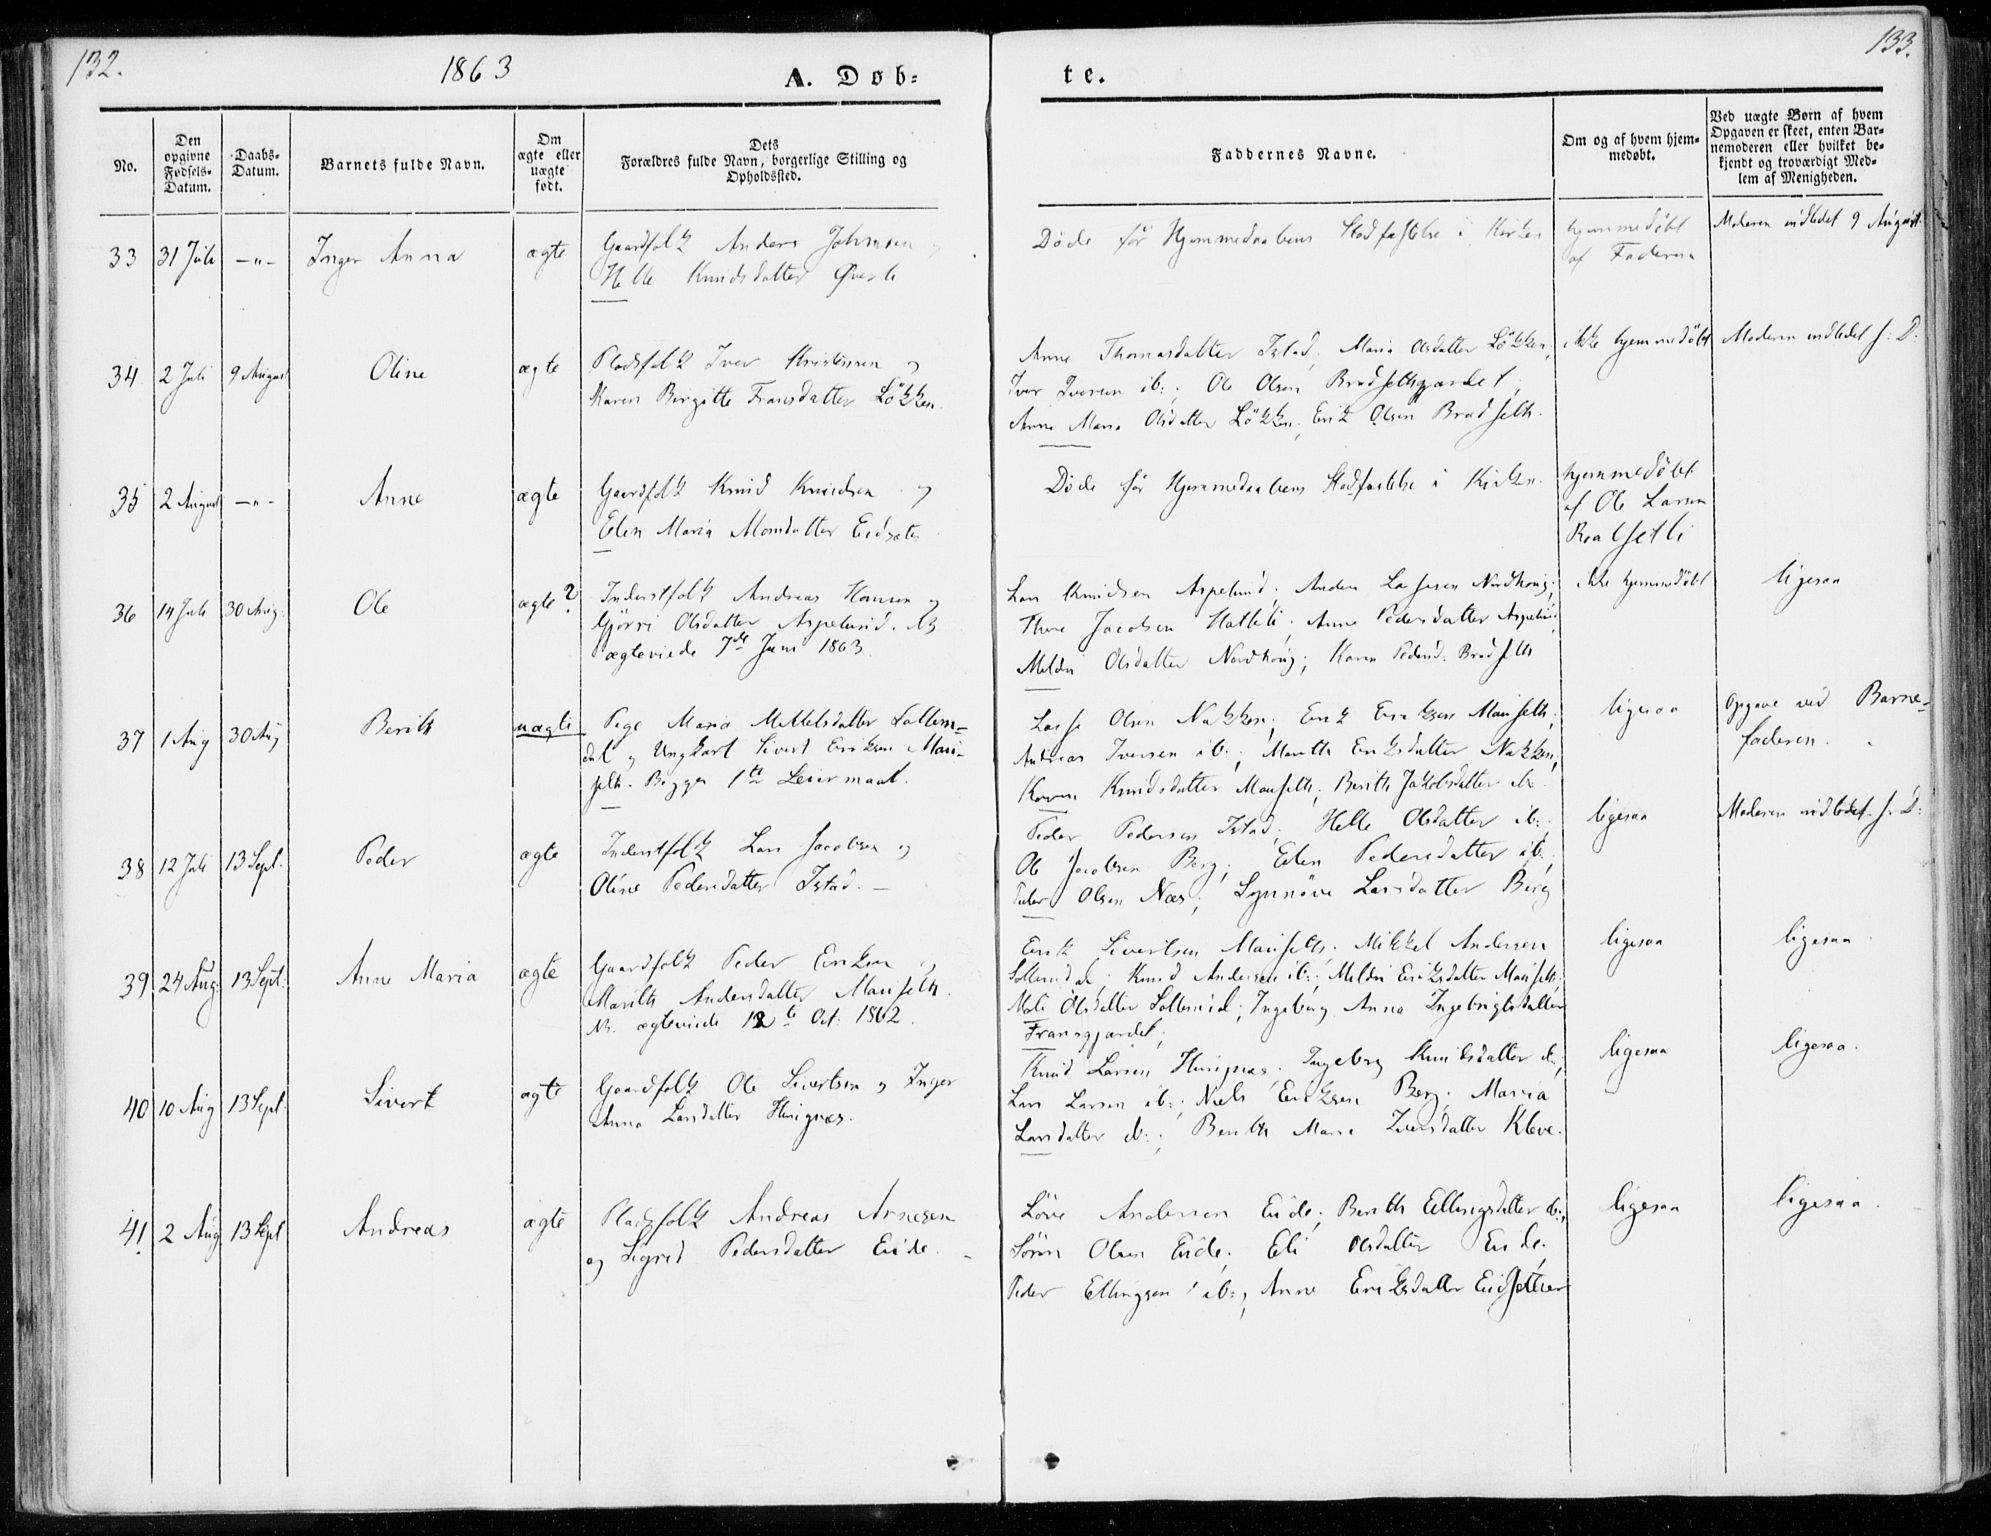 132.
1863
A. Døb-
te.
133.
No.
Den
opgivne
Fødsels-
Datum.
Daabs-
Datum.
Barnets fulde Navn.
Om
ægte eller
uægte
født.
Dets
Forældres fulde Navn, borgerlige Stilling og
Opholdssted.
Faddernes Navne.
Om og af hvem hjem-
medøbt.
Ved uægte Børn af hvem
Opgaven er skeet, enten Bar-
nemoderen eller hvilket be-
kjendt og troværdigt Med-
lem af Menigheden.
33 31 Juli -"- Inger Anna ægte
Gaardfolk Anders Johnsen og
Helle Knudsdatter
Døde før Hjemmedaabens Stadfæstelse i Kirken
hjemmedøbt
af Faderen
Moderen indledet 9 August
34 2 Juli 9 August Oline ægte
Pladsfolk Iver Kristensen og
Karen Birgitte Fransdatter Løkken.
Anne Thomasdatter Istad; Maria Olsdatter Løkken;
Iver Iversen ib:; Ole Olsen Bradsethgjærdet;
Anne Maria Olsdatter Løkken; Erik Olsen Bradseth.
ikke hjemmedøbt
Moderen indledet s: D:
35 2 August -"- Anne ægte
Gaardfolk Knud Knudsen og
Elen Maria Monsdatter Eidsæter
Døde før Hjemmedaabens Stadfæstelse i Kirken.
hjemmedøbt
af Ole Larsen
36 14 Juli 30 Aug: Ole ægte?
Inderstfolk Andreas Hansen og
Gjøri Olsdatter Aspelund. NB
ægteviede 7de Juni 1863.
Lars Knudsen Aspelund; Anders Lassesen Nordhoug;
Thore Jacobsen Hatleli; Anne Pedersdatter Aspelund;
Meldri Olsdatter Nordhoug; Karen Pedersd: Bradseth
ikke hjemmedøbt
ligesaa
37 1 Aug 30 Aug Berith uægte
Pige Maria Mikkelsdatter Sollem-
dal og Ungkarl Sivert Eriksen Mau-
seth. Begges 1te Leiermaal.
Lasse Olsen Nakken; Erik Eriksen Mauseth;
Andreas Iversen ib:; Marith Eriksdatter Nakken;
Karen Knudsdatter Mauseth; Berith Jakobsdatter ib:
ligesaa
Opgave ved Barne-
faderen.
38 12 Juli 13 Sept. Peder ægte
Inderstfolk Lars Jacobsen og
Oline Pedersdatter Istad. —
Peder Pedersen Istad; Helle Olsdatter ib:;
Ole Jacobsen Berg; Elen Pedersdatter ib:;
Peder Olsen Næs; Synnøve Larsdatter Berg
ligesaa
Moderen indledet s. D:
39 24 Aug: 13 Sept: Anne Maria ægte
Gaardfolk Peder Eriksen og
Marith Andersdatter Mauseth.
NB. ægteviede 12te Oct: 1862.
Erik Sivertsen Mauseth; Mikkel Andersen
Sollemdal; Knud Andersen ib:; Meldri Eriksdatter Mauseth;
Olsdatter Sollemdal; Ingeborg Anna Ingebrigtsdatter
Fransgjærdet;
ligesaa
ligesaa
40 10 Aug 13 Sept: Sivert ægte
Gaardfolk Ole Sivertsen og Inger
Anna Larsdatter Husignæs.
Knud Larsen Husignæs; Ingeborg Knudsdatter ib:;
Lars Larsen ib:; Niels Eriksen Berg; Maria
Larsdatter ib:; Berith Marie Iversdatter Kleve.
ligesaa
ligesaa.
41. 2 Aug 13 Sept Andreas ægte
Pladsfolk Andreas Arnesen
og Sigrid Pedersdatter Eide. —
Andersen Eide; Berith Ellingsdatter ib:;
Søren Olsen Eide; Eli Olsdatter Eide;
Peder Ellingsen ib:; Anne Eriksdatter Eidsæter
ligesaa
ligesaa.